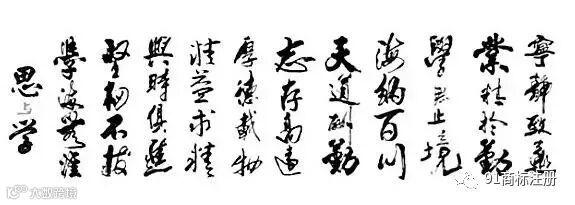 寧靜致遠
業精於勤
學無止境
海納百川
天道酬勤
志存高遠
厚德載物
精益求精
與時俱進
堅韌不拔
學海無涯
思与学
大数跨境
91商标注册